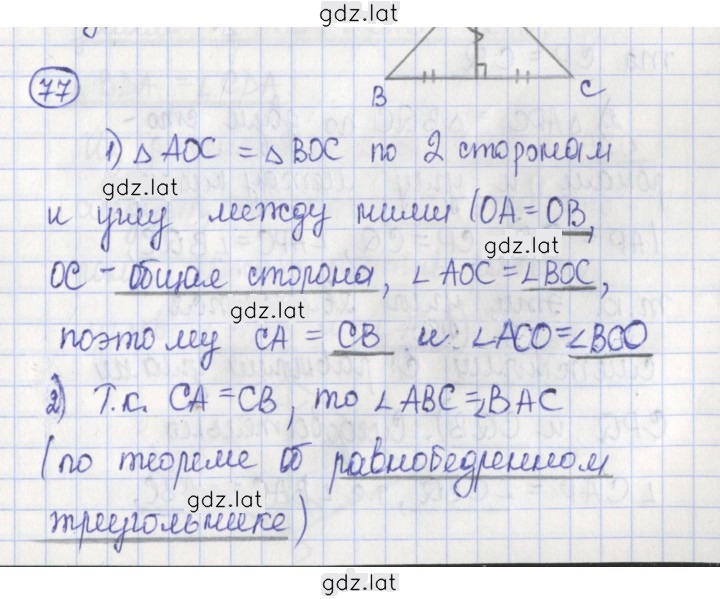 gdz.lat
B C
77
1) △ AOC = △ BOC по 2 сторонам
gdz.lat
и углу между ними (OA = OB,
gdz.lat
OC - общая сторона, ∠ AOC = ∠ BOC,
gdz.lat
поэтому CA = CB и ∠ACO = ∠BCO
2) Т.к. CA = CB, то ∠ABC = ∠BAC
(по теореме об равнобедренном
gdz.lat
треугольнике)
gdz.lat